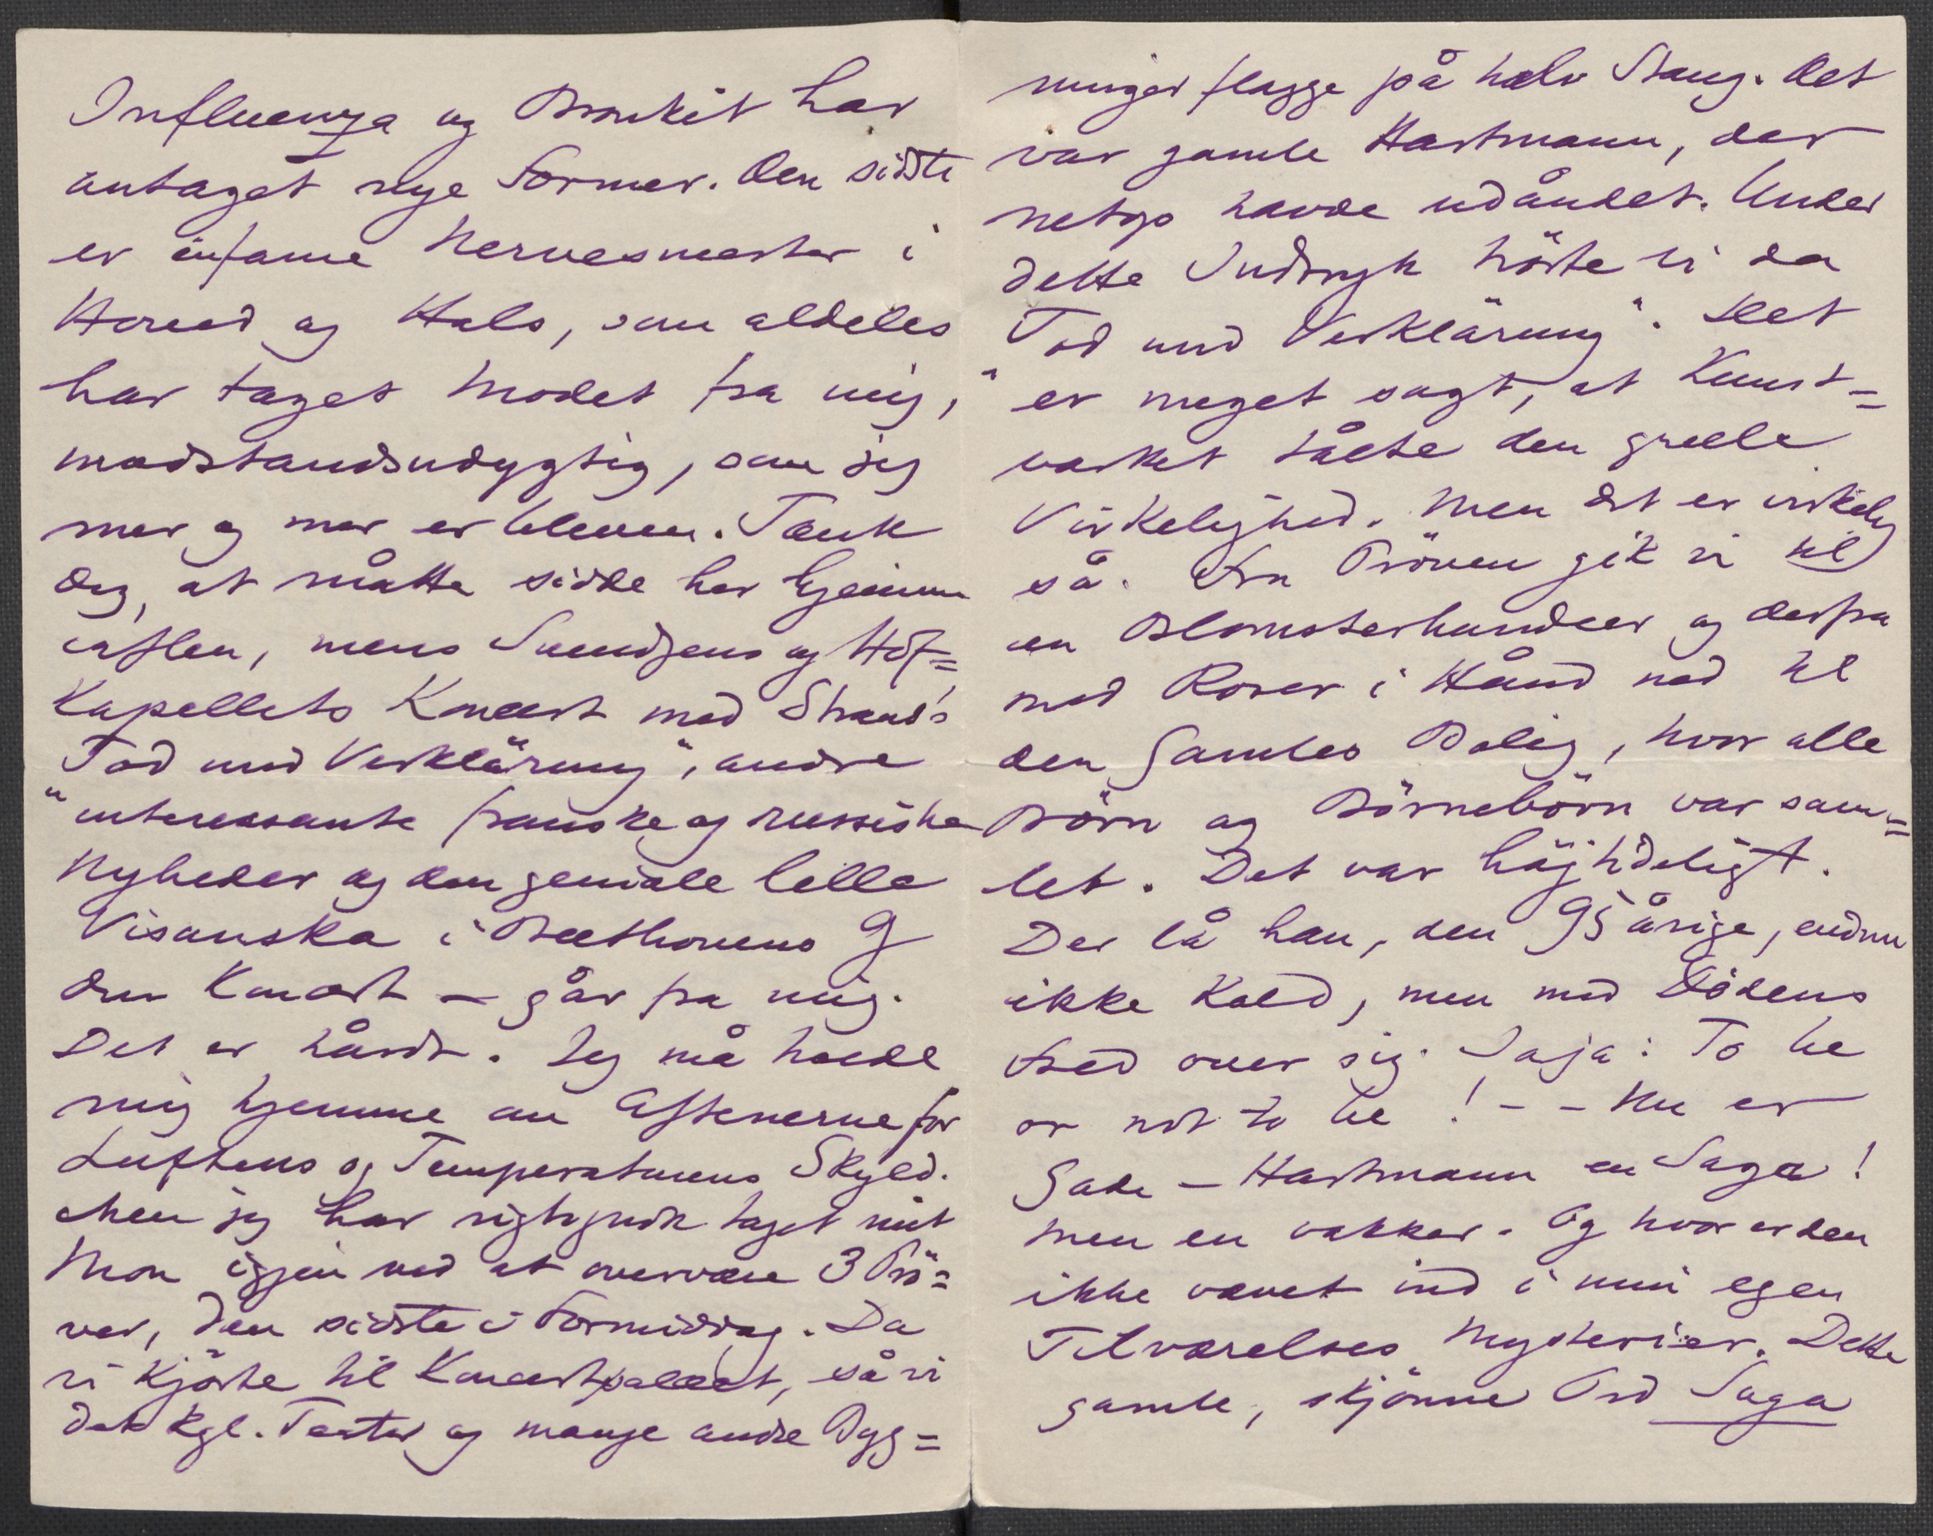 Influenza og Bronkit har
antaget nye Former. Den sidste
er infame Nervesmerter i
Hoved og Hals, som aldeles
har taget Modet fra mig,
modstandsudygtig, som jeg
mer og mer er bleven. Tænk
dig, at måtte sidde her hjemme
iaften, mens Svendsens og Hof-
Kapellets Koncert med Strauss's
"Tod und Verklärung", andre
interessante franske og russiske
Nyheder og den geniale lille
Visanska i Beethovens G
dur Koncert – går fra mig.
Det er hårdt. Jeg må holde
mig hjemme om Aftenerne for
Luftens og Temperaturens Skyld.
Men jeg har rigtignok taget mit
Mon igjen ved at overvære 3 Prö-
ver, den sidste i Formiddag. Da
vi kjörte til Koncertpalæet, så vi
det kgl. Teater og mange andre Byg-
ninger flagge på halv Stang. Det
var gamle Hartmann, der
netop havde udåndet. Under
dette Indtryk hörte vi da
"Tod und Verklärung". Det
er meget sagt, at Kunst-
værket tålte den grelle
Virkelighed. Men det er virkelig
så. Fra Pröven gik vi til
en Blomsterhandler og derfra
med Roser i Hånd ned til
den Gamles Bolig, hvor alle
Börn og Börnebörn var sam-
let. Det var höjtideligt.
Der lå han, den 95 årige, endnu
ikke kold, men med Dödens
Fred over sig. Jaja: To be
or not to be! – – Nu er
Gade – Hartmann en Saga!
Men en vakker. Og hvor er den
ikke vævet ind i min egen
Tilværelses Mysterier. Dette
gamle, skjönne Ord Saga